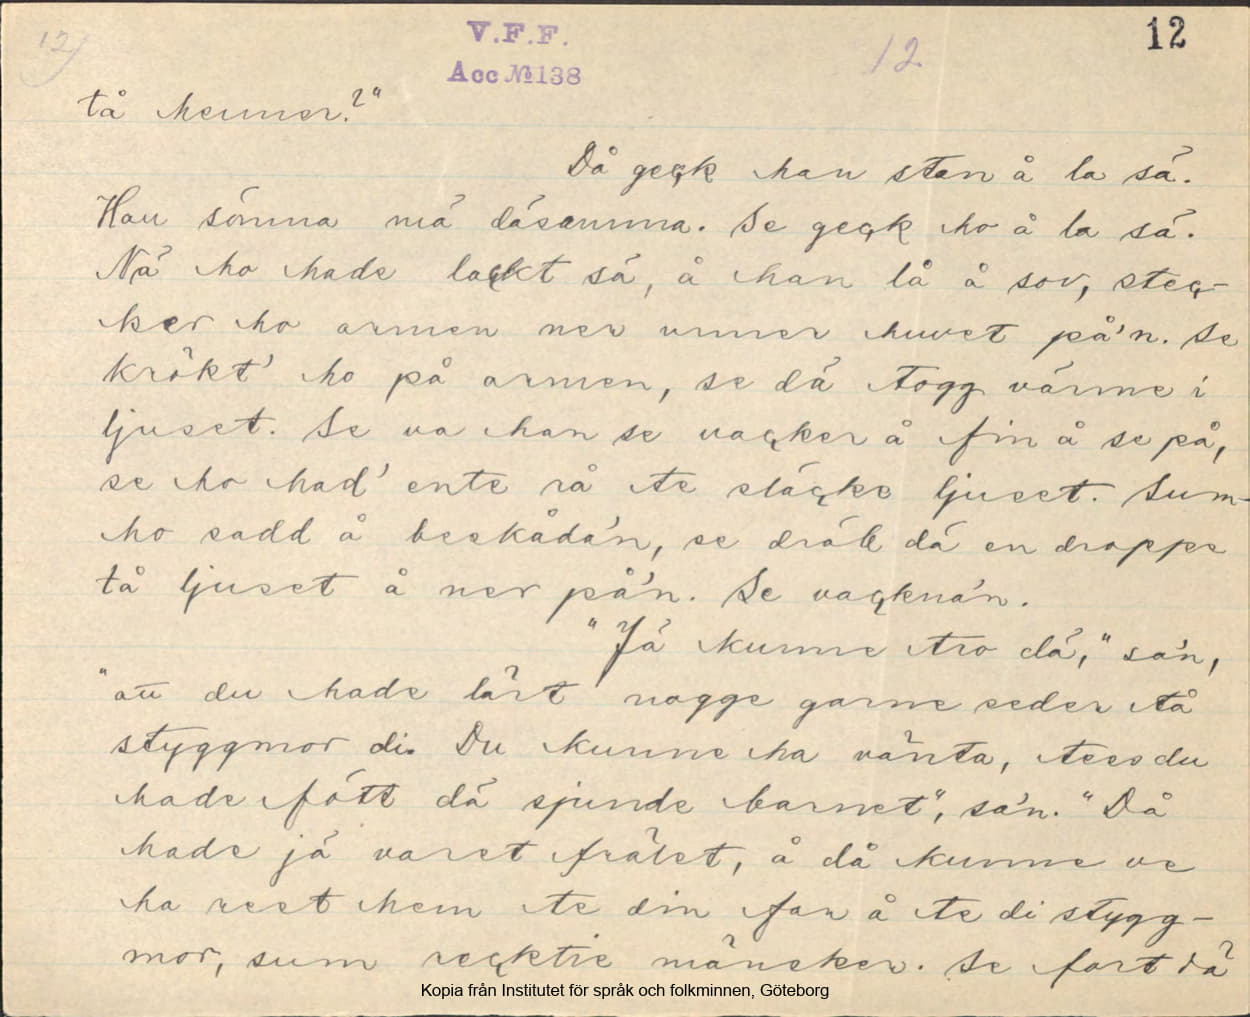 12)
V.F.F.
Acc № 138
12
12
tå henner?"
Då geçk han stan å la sä.
Han sömna mä däsamma. Se geçk ho å la sä.
Nä ho hade laçkt sä, å han lå å sov, steç-
ker ho armen ner unner huvet på'n. Se
krökt' ho på armen, se dä togg värme i
ljuset. Se va han se vaçker å fin å se på,
se ho had' ente rå te släçke ljuset. Sum
ho sadd å beskåda'n, se dräll dä en droppe
tå ljuset å ner på'n. Se vaçkna'n.
"Jä kunne tro dä," sa'n,
"att du hade lärt nogge garne seder tå
styggmor di. Du kunne ha vänta, tess du
hade fött dä sjunde barnet", sa'n. "Då
hade jä varet frälst, å då kunne ve
ha rest hem te din far å te di stygg-
mor, sum reçktie mänsker. Se fort dä
Kopia från Institutet för språk och folkminnen, Göteborg